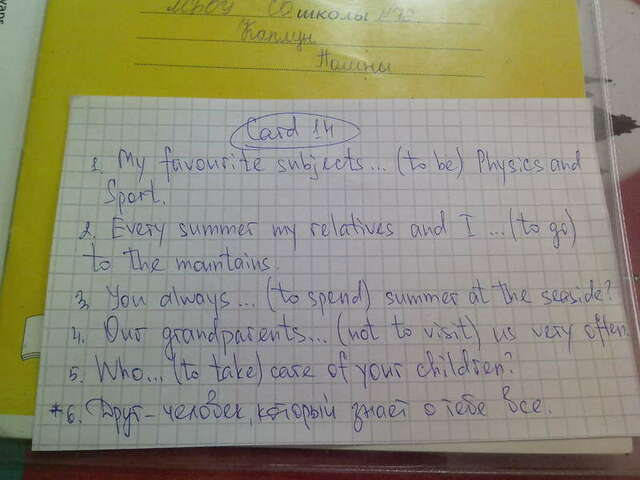 МБОУ СО школы №
Каплун
Полины
Card 14
1. My favourite subjects... (to be) Physics and
Sport.
2. Every summer my relatives and I ... (to go)
to the mountains.
3. You always... (to spend) summer at the seaside?
4. Our grandparents... (not to visit) us very often.
5. Who... (to take) care of your children?
*6. Друг – человек, который знает о тебе все.